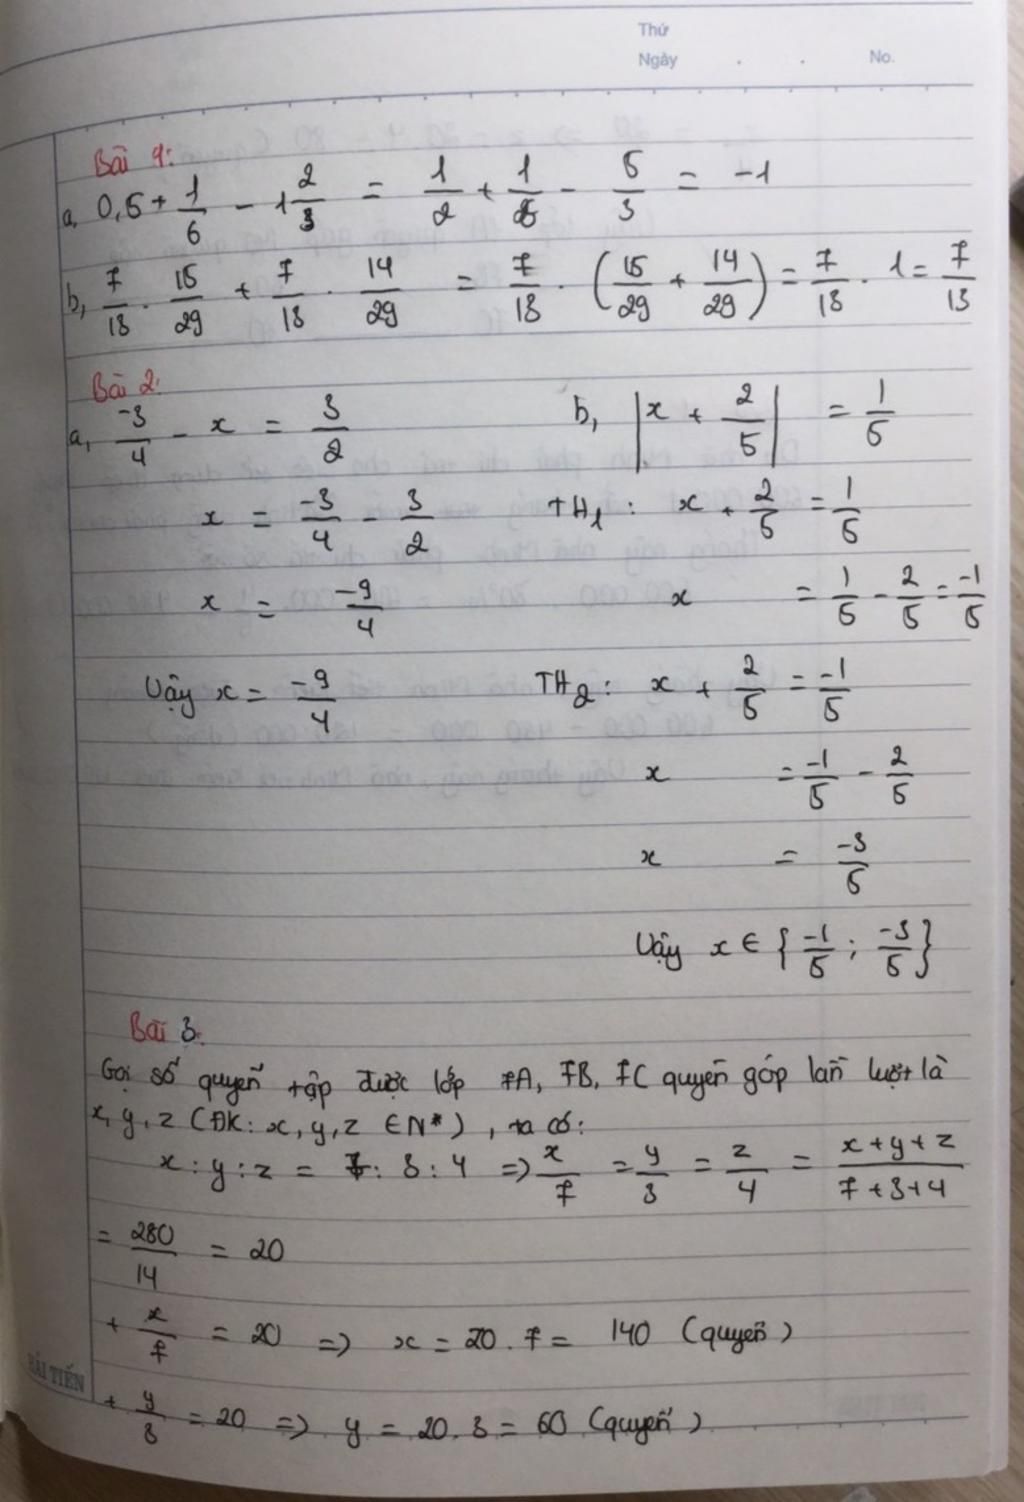 Thứ
Ngày . . No.
Bài 1:
a, 0,5 + 1/6 - 1 2/3 = 1/2 + 1/6 - 5/3 = -1
b, 7/13 . 15/29 + 7/13 . 14/29 = 7/13 . (15/29 + 14/29) = 7/13 . 1 = 7/13
Bài 2:
a, -3/4 - x = 3/2 b, |x + 2/5| = 1/5
x = -3/4 - 3/2 TH1: x + 2/5 = 1/5
x = -9/4 x = 1/5 - 2/5 = -1/5
Vậy x = -9/4 TH2: x + 2/5 = -1/5
x = -1/5 - 2/5
x = -3/5
Vậy x ∈ {-1/5 ; -3/5}
Bài 3:
Gọi số quyển tập được lớp 7A, 7B, 7C quyên góp lần lượt là
x, y, z (ĐK: x, y, z ∈ N*), ta có:
x : y : z = 7 : 3 : 4 => x/7 = y/3 = z/4 = x+y+z/7+3+4
= 280/14 = 20
+ x/7 = 20 => x = 20 . 7 = 140 (quyển)
+ y/3 = 20 => y = 20 . 3 = 60 (quyển)
HẢI TIẾN